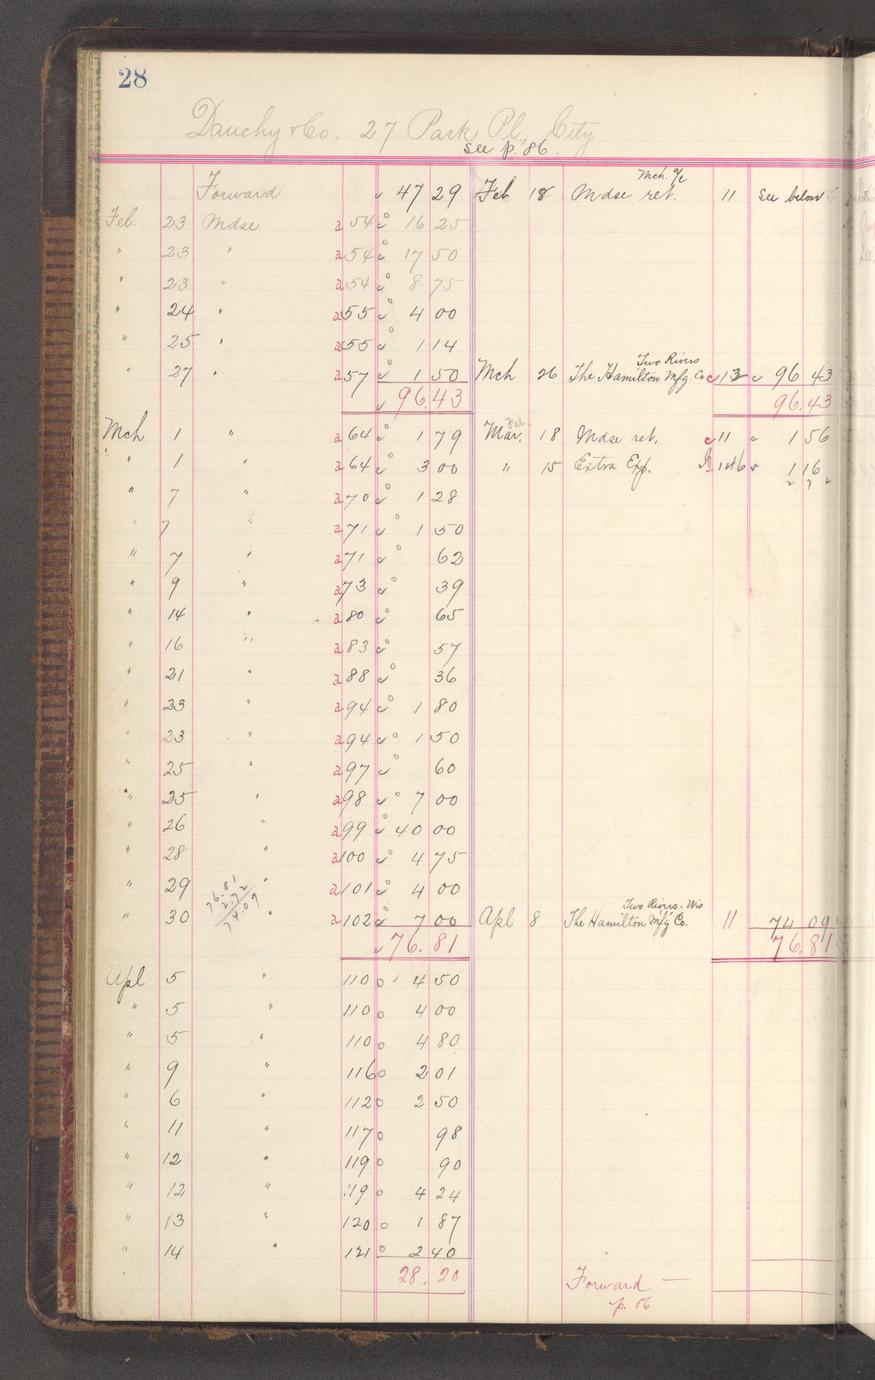 28
Dauchy & Co. 27 Park Pl., City
see p. 86.
Forward 47 29 Feb 18 Mdse ret. Mch. a/c 11 see below
Feb. 23 Mdse a 54 16 25
" 23 " a 54 17 50
" 23 " a 54 8 75
" 24 " a 55 4 00
" 25 " a 55 1 14
" 27 " a 57 1 50 Mch 26 The Hamilton Mfg. Co Two Rivers c 13 96 43
96.43 96.43
Mch 1 " a 64 1 79 Mar. Feb. 18 Mdse ret. c 11 1 56
" 1 " a 64 3 00 " 15 Extra Exp. 146 1 16
2 72
" 7 " a 70 1 28
" 7 " a 71 1 50
" 7 " a 71 62
" 9 " a 73 39
" 14 " a 80 65
" 16 " a 83 57
" 21 " a 88 36
" 23 " a 94 1 80
" 23 " a 94 1 50
" 25 " a 97 60
" 25 " a 98 7 00
" 26 " a 99 40 00
" 28 " a 100 4 75
" 29 " a 101 4 00
76.81
2.72
74.09
" 30 " a 102 7 00 Apl 8 The Hamilton Mfg Co. Two Rivers. Wis 11 74 09
76.81 76.81
Apl 5 " 110 4 50
" 5 " 110 4 00
" 5 " 110 4 80
" 9 " 116 2 01
" 6 " 112 2 50
" 11 " 117 98
" 12 " 119 90
" 12 " 119 4 24
" 13 " 120 1 87
" 14 " 121 2 40
28.20 Forward —
p. 86